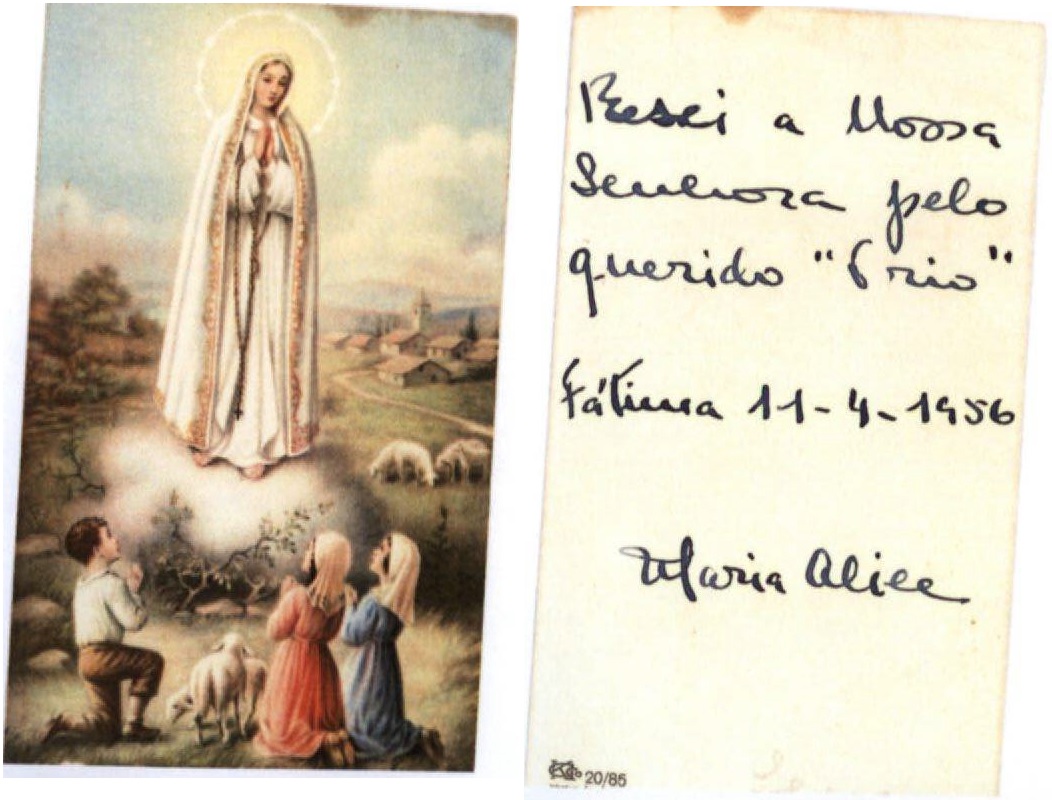 Resei a Nossa
Senhora pelo
querido "Trio"
Fátima 11-4-1956
Maria Alice
20/86